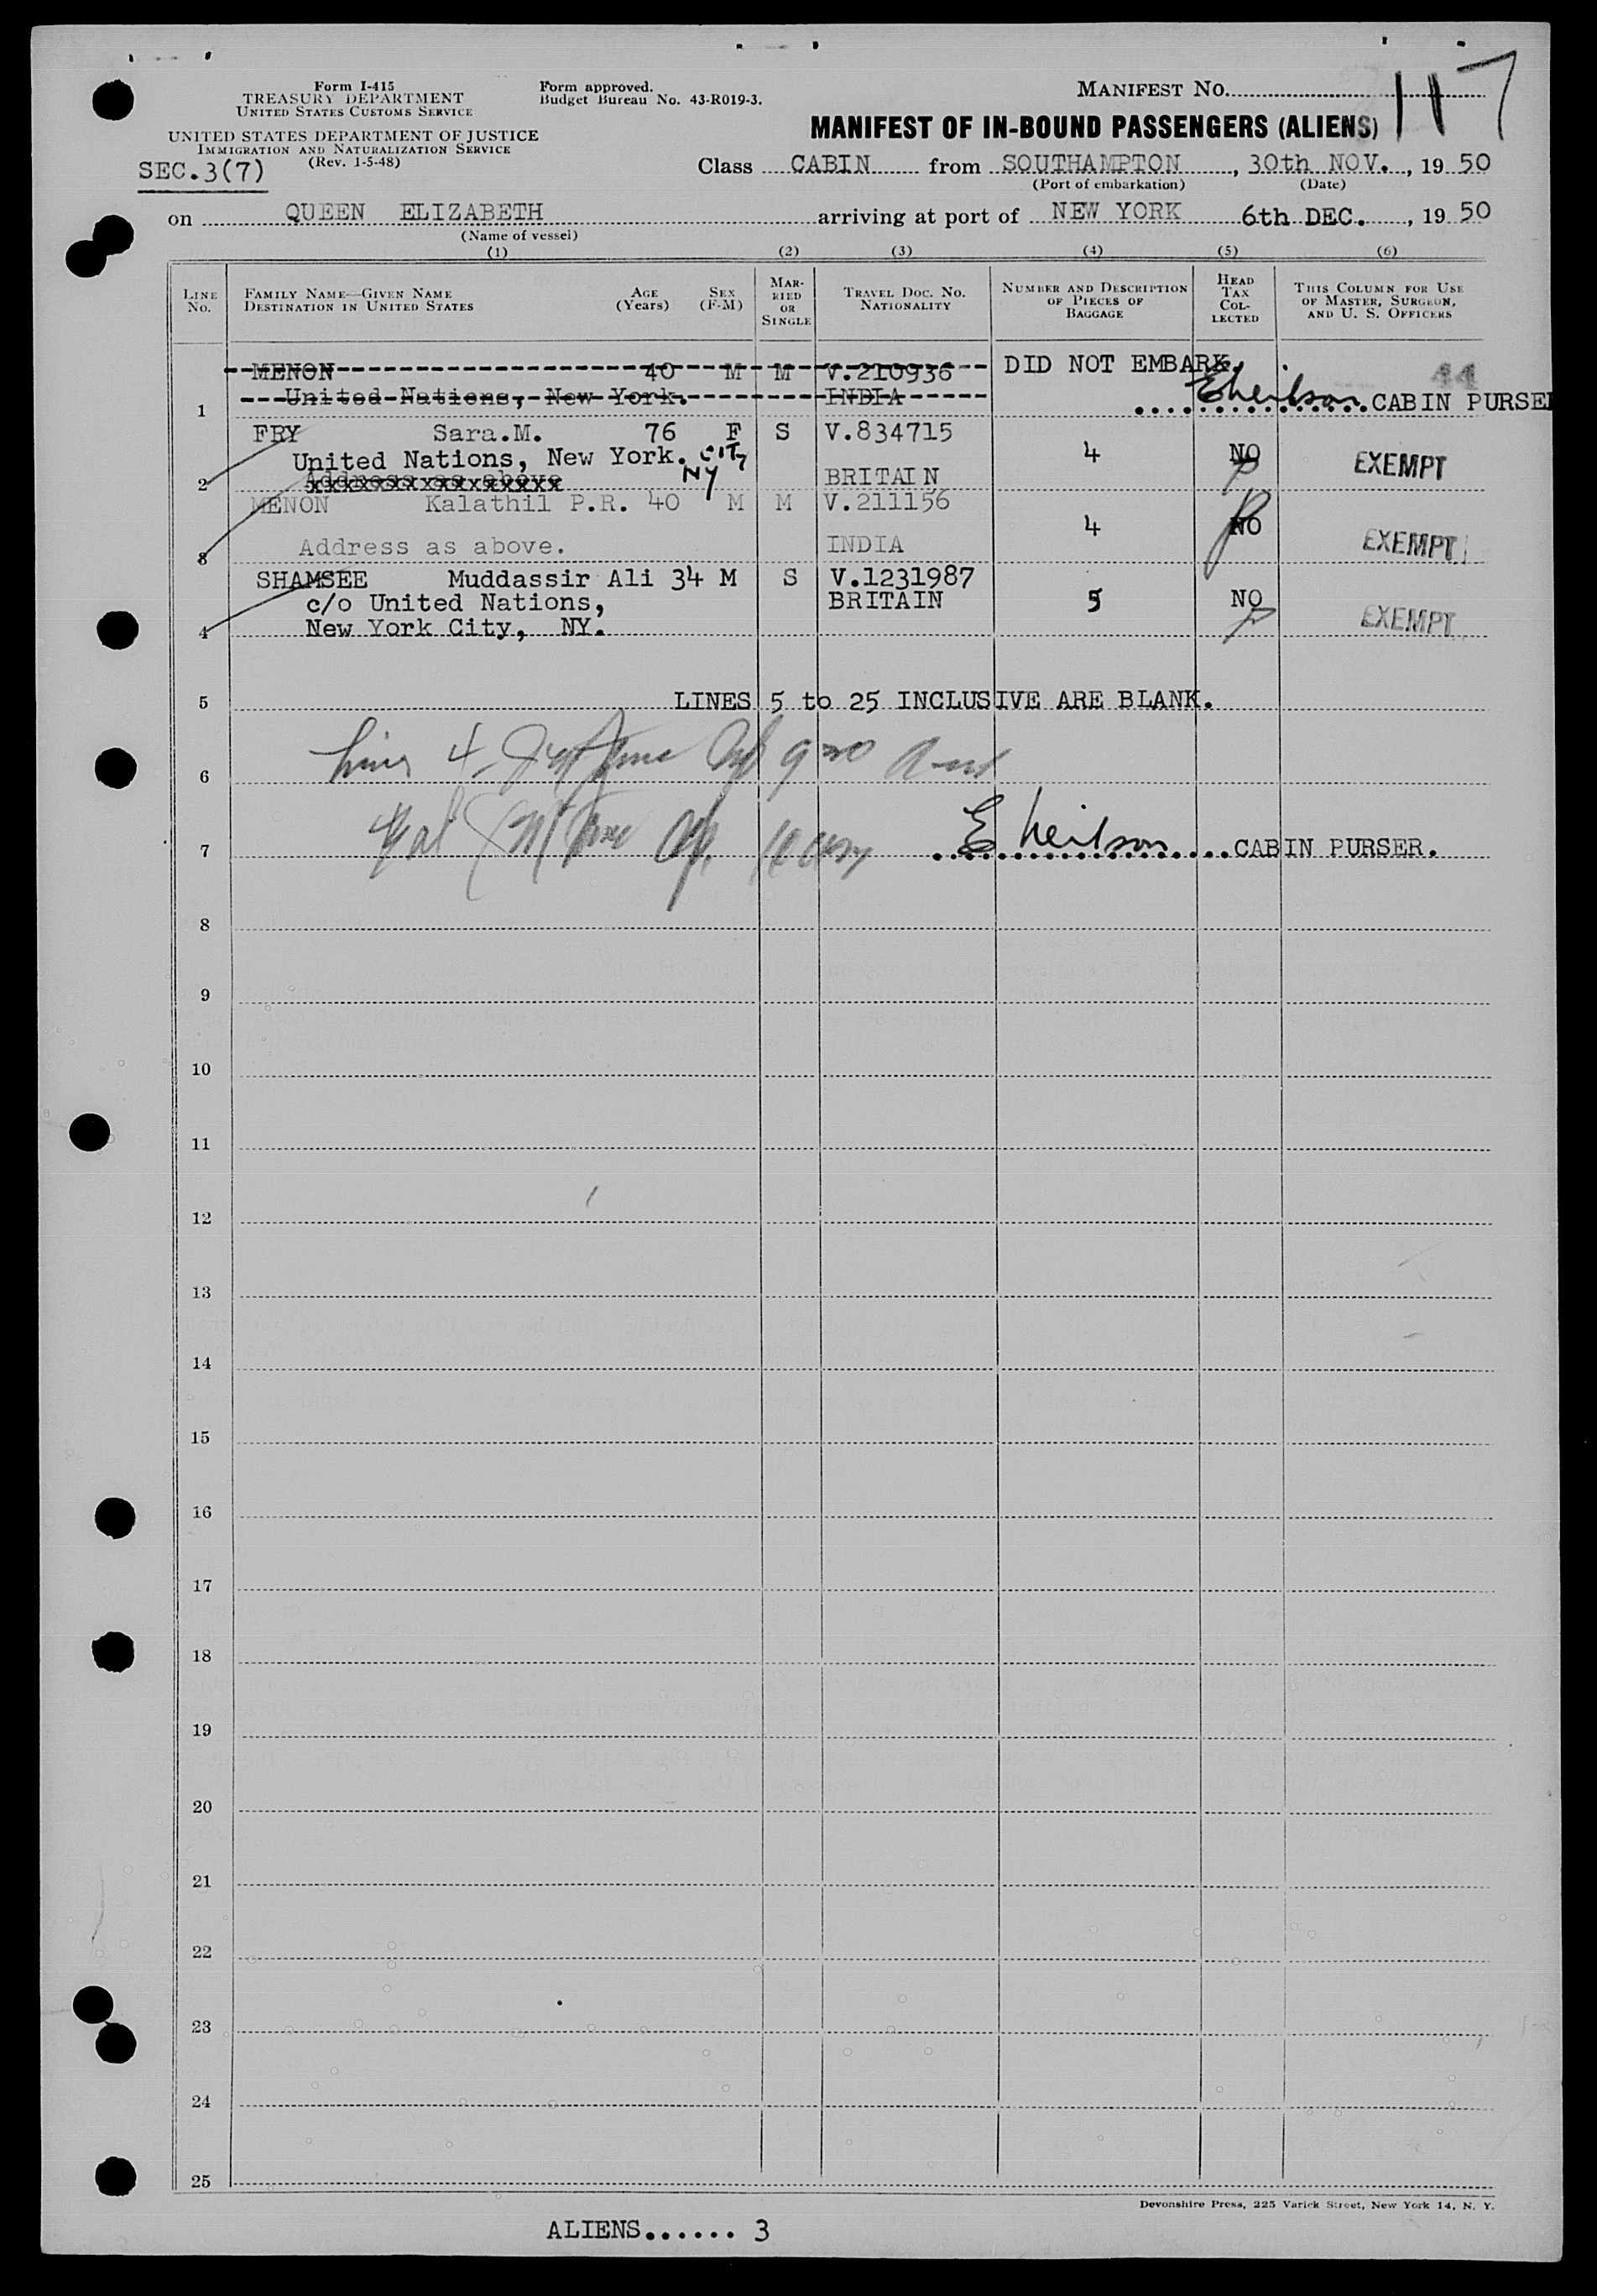 Form I-415
TREASURY DEPARTMENT
UNITED STATES CUSTOMS SERVICE
UNITED STATES DEPARTMENT OF JUSTICE
IMMIGRATION AND NATURALIZATION SERVICE
(Rev. 1-5-48)
SEC.3(7)
Form approved.
Budget Bureau No. 43-R019-3.
MANIFEST NO. 117
MANIFEST OF IN-BOUND PASSENGERS (ALIENS)
Class CABIN from SOUTHAMPTON, 30th NOV., 19 50
(Port of embarkation) (Date)
on QUEEN ELIZABETH arriving at port of NEW YORK 6th DEC., 19 50
(Name of vessel)
(1) (2) (3) (4) (5) (6)
LINE NO.
FAMILY NAME—GIVEN NAME DESTINATION IN UNITED STATES
AGE (Years)
SEX (F-M)
MARRIED OR SINGLE
TRAVEL DOC. NO. NATIONALITY
NUMBER AND DESCRIPTION OF PIECES OF BAGGAGE
HEAD TAX COLLECTED
THIS COLUMN FOR USE OF MASTER, SURGEON, AND U. S. OFFICERS
MENON 40 M M V.210936 DID NOT EMBARK. 44
1 United Nations, New York. INDIA E Neilson CABIN PURSER
FRY Sara.M. 76 F S V.834715
United Nations, New York. CITY NY 4 NO EXEMPT
2 Address as above BRITAIN
MENON Kalathil P.R. 40 M M V.211156
4 NO
3 Address as above. INDIA EXEMPT
SHAMSEE Muddassir Ali 34 M S V.1231987
c/o United Nations, BRITAIN 5 NO
4 New York City, NY. EXEMPT
5 LINES 5 to 25 INCLUSIVE ARE BLANK.
6 4
7 E Neilson CABIN PURSER.
8
9
10
11
12
13
14
15
16
17
18
19
20
21
22
23
24
25
Devonshire Press, 225 Varick Street, New York 14, N. Y.
ALIENS...... 3